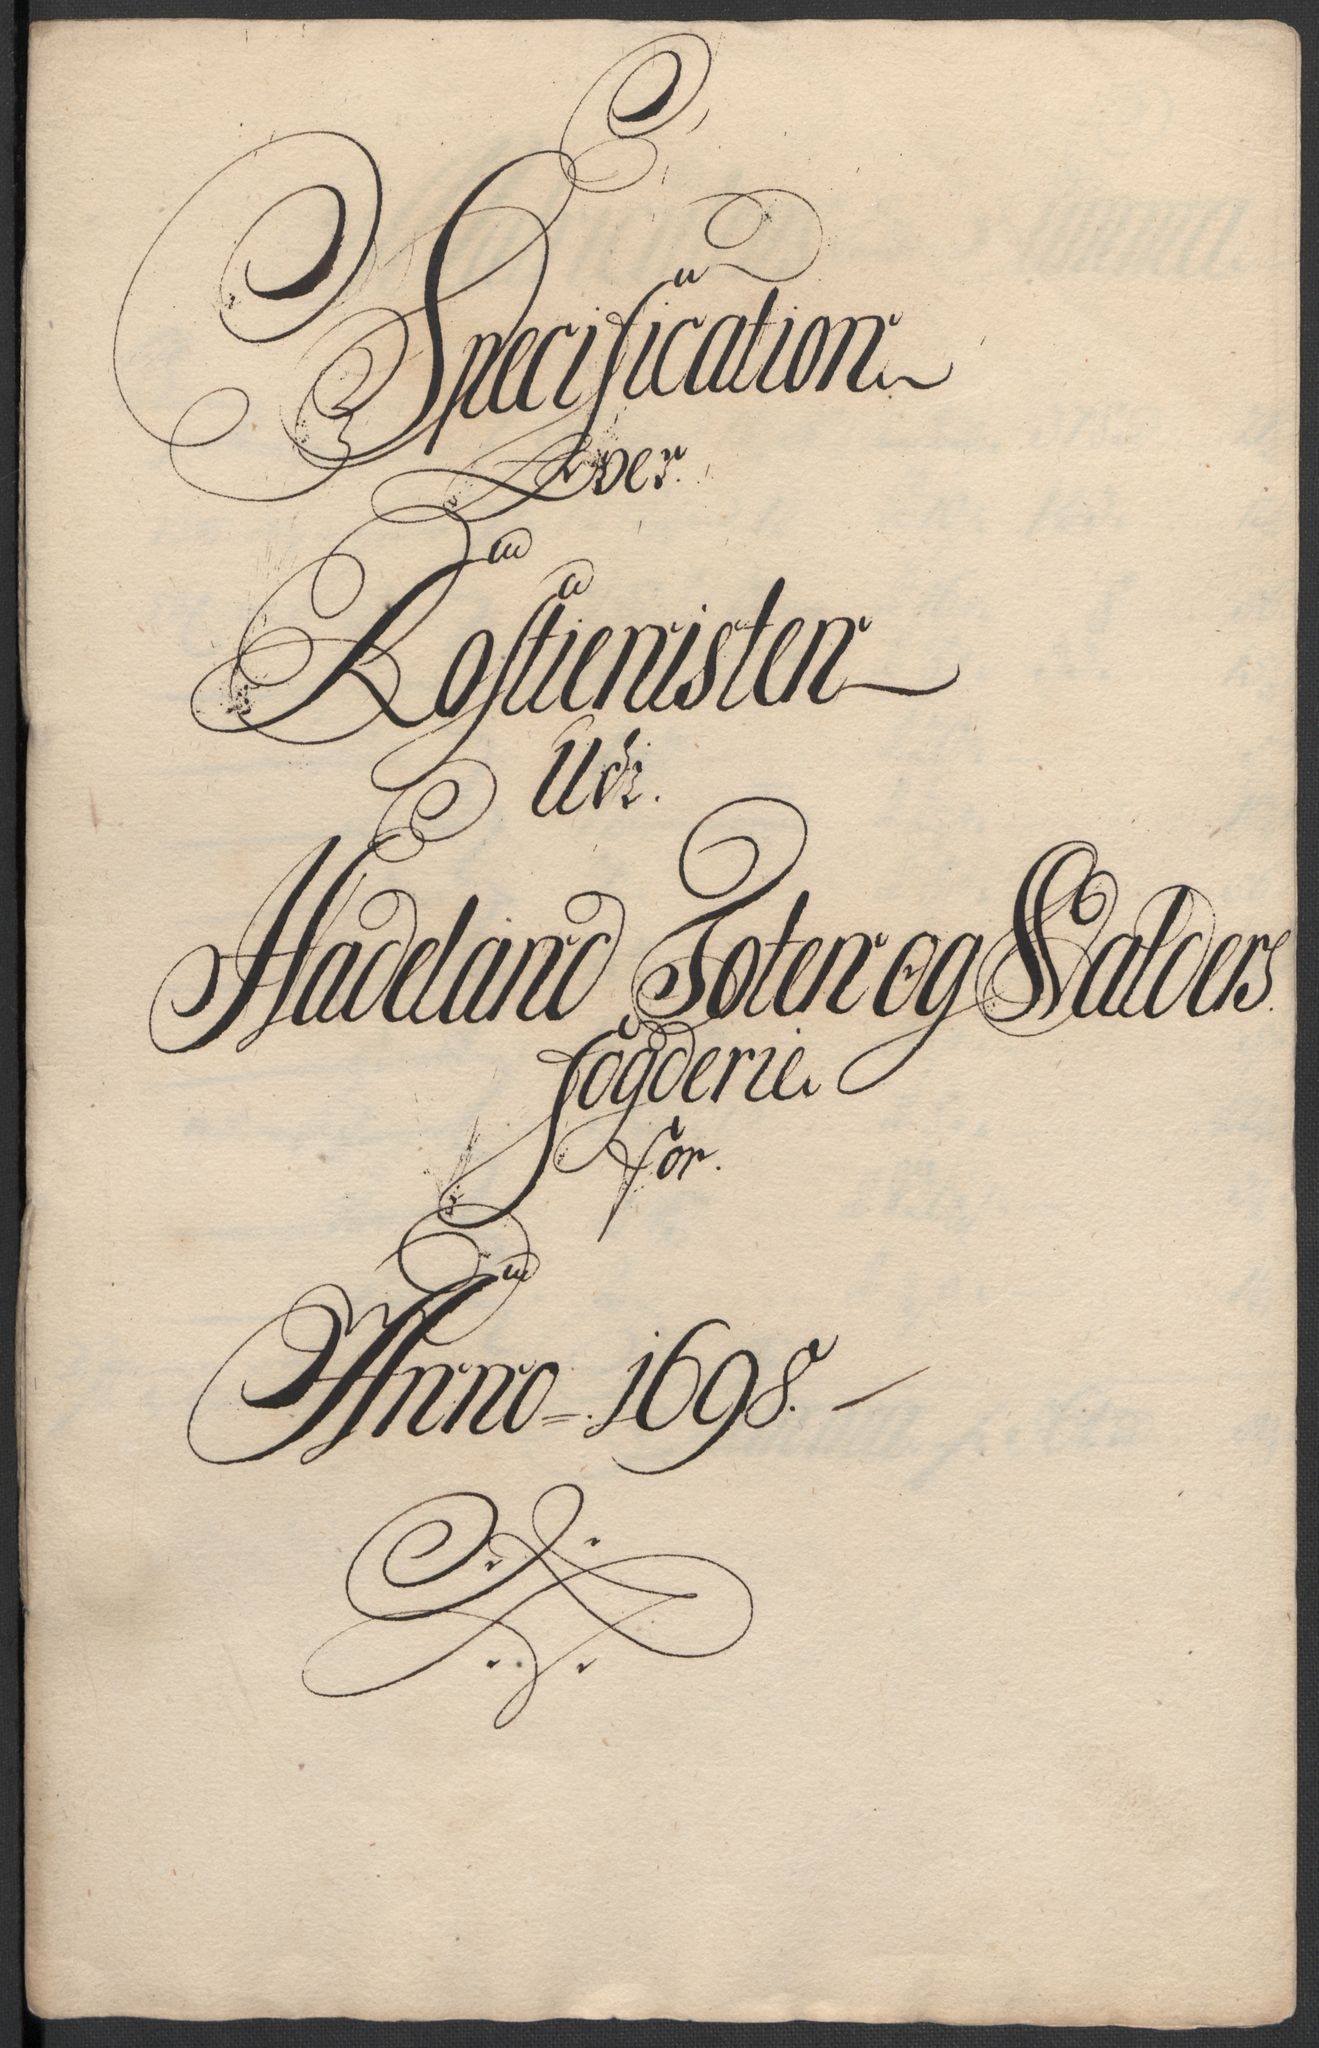 Specification
Over
Rostienisten
Udi
Hadeland Toten og Walders
fögderie
for
Anno 1698.